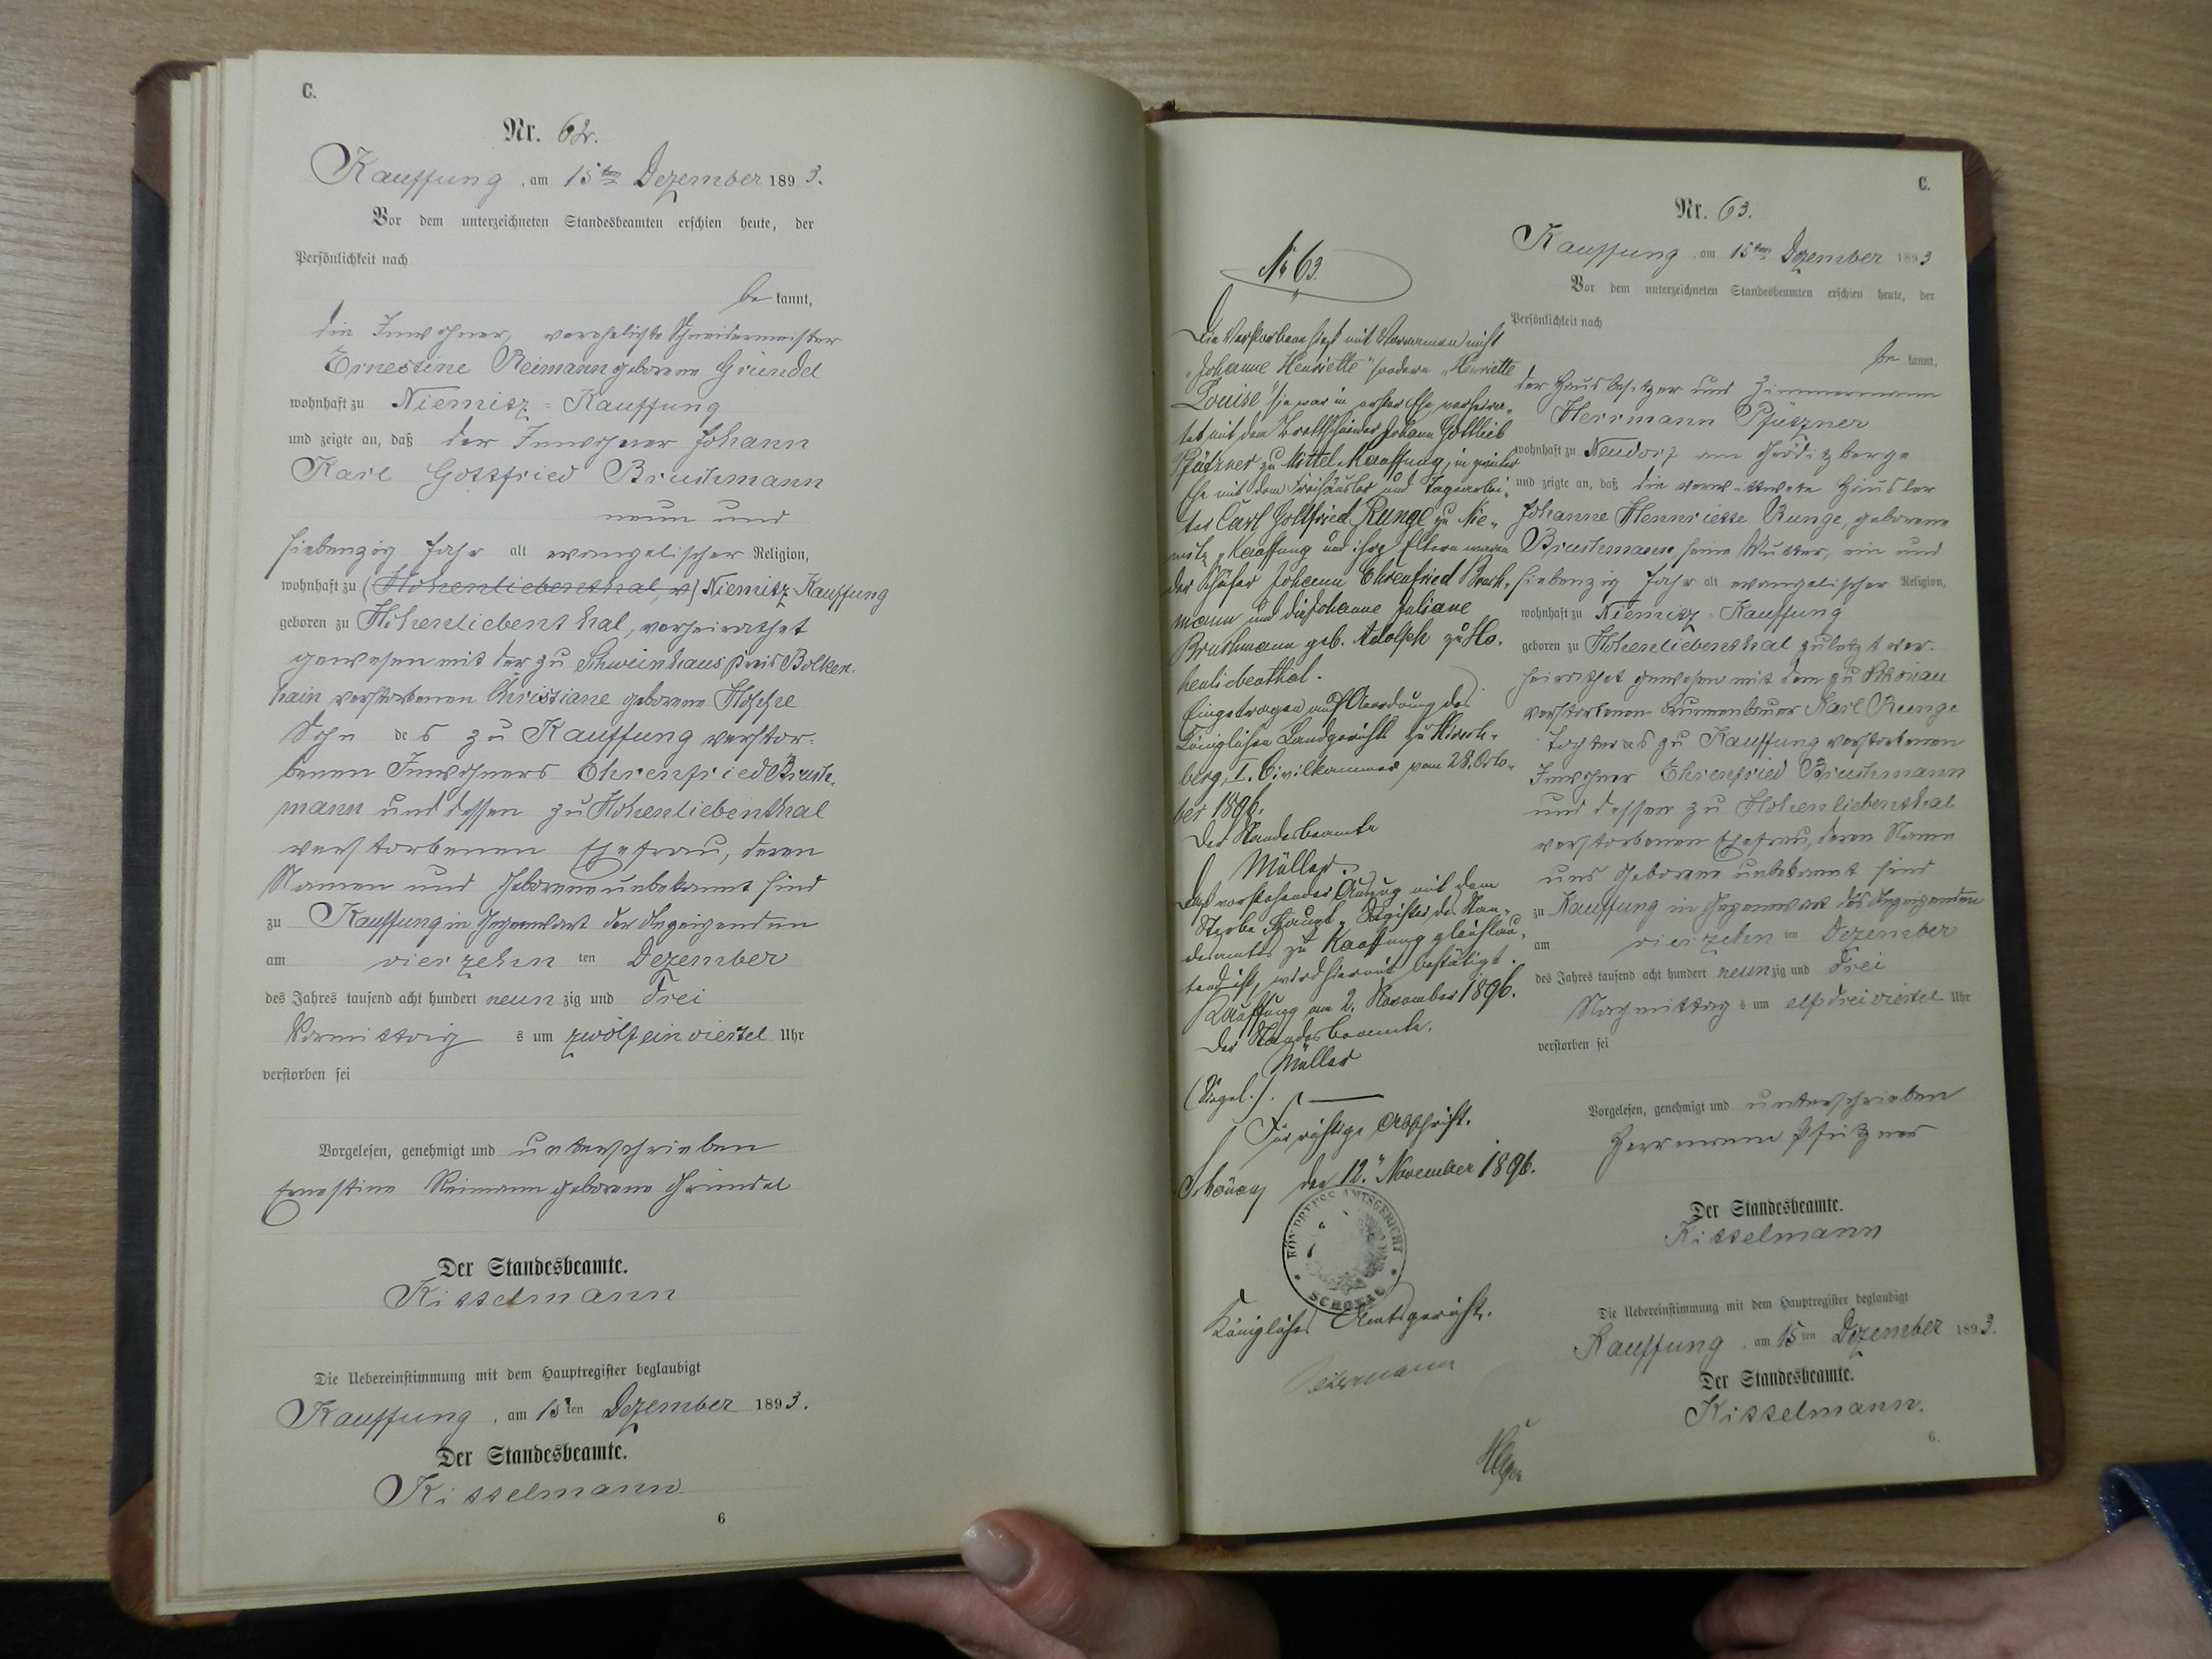 C.
Nr. 62.
Kauffung, am 15ten Dezember 1893.
Vor dem unterzeichneten Standesbeamten erschien heute, der
Persönlichkeit nach
be kannt,
die Inwohner, verehelichte Schneidermeister
Ernestine Reimann geborene Gründel
wohnhaft zu Niemitz-Kauffung
und zeigte an, daß der Inwohner Johann
Karl Gottfried Bruchmann
neun und
siebenzig Jahr alt evangelischer Religion,
wohnhaft zu (Hohenliebenthal,) Niemitz-Kauffung
geboren zu Hohenliebenthal, verheirathet
gewesen mit der zu Schweinhaus Kreis Bolken-
hain verstorbenen Christiane geborene
Sohn des zu Kauffung verstor-
benen Inwohners Ehrenfried Bruch-
mann und dessen zu Hohenliebenthal
verstorbenen Ehefrau, deren
Namen und Geborene unbekannt sind
zu Kauffung in Gegenwart der Anzeigenden
am vierzehn ten Dezember
des Jahres tausend acht hundert neunzig und drei
Vormittag s um zwölf ein viertel Uhr
verstorben sei
Vorgelesen, genehmigt und unterschrieben
Ernestine Reimann geborene Gründel
Der Standesbeamte.
Kisselmann
Die Uebereinstimmung mit dem Hauptregister beglaubigt
Kauffung, am 15ten Dezember 1893.
Der Standesbeamte.
Kisselmann
6
No 63.
Die Verstorbene hieß mit Vornamen nicht
"Johanne Henriette" sondern "Henriette
Louise" sie war in erster Ehe verheira-
tet mit dem Brettschneider Johann Gottlieb
Pfützner zu Mittel-Kauffung, in zweiter
Ehe mit dem Freihäusler und Tagearbei-
ter Carl Gottfried Runge zu Nie-
mitz-Kauffung und ihre Eltern waren
der Schäfer Johann Ehrenfried Bruch-
mann und die Johanne Juliane
Bruchmann geb. Adolph zu Ho-
henliebenthal.
Eingetragen auf Anordnung des
Königlichen Landgerichts zu Hirsch-
berg, I. Civilkammer vom 28. Okto-
ber 1896.
Der Standesbeamte
Müller.
Daß vorstehender Auszug mit dem
Sterbe-Haupt-Register des Stan-
desamtes zu Kauffung gleichlau-
tend ist, wird hiermit bestätigt.
Kauffung am 2. November 1896.
Der Standesbeamte.
Müller
(Siegel.)
Für richtige Abschrift.
Schönau, den 12. November 1896.
KÖN. PREUSS. AMTSGERICHT
SCHÖNAU
Königliches Amtsgericht.
C.
Nr. 63.
Kauffung, am 15ten Dezember 1893
Vor dem unterzeichneten Standesbeamten erschien heute, der
Persönlichkeit nach
be kannt,
der Hausbesitzer und Zimmermann
Herrmann Pfützner
wohnhaft zu Neudorf am Gröditzberge
und zeigte an, daß die verwittwete Häusler
Johanne Henriette Runge, geborene
Bruchmann, seine Mutter, ein und
siebenzig Jahr alt evangelischer Religion,
wohnhaft zu Niemitz-Kauffung
geboren zu Hohenliebenthal zuletzt ver-
heirathet gewesen mit dem zu Schönau
verstorbenen Brunnenbauer Karl Runge
Tochter des zu Kauffung verstorbenen
Inwohner Ehrenfried Bruchmann
und dessen zu Hohenliebenthal
verstorbenen Ehefrau, deren Name
und Geborene unbekannt sind
zu Kauffung in Gegenwart des Anzeigenden
am vierzehn ten Dezember
des Jahres tausend acht hundert neunzig und drei
Nachmittag s um elf dreiviertel Uhr
verstorben sei
Vorgelesen, genehmigt und unterschrieben
Herrmann Pfützner
Der Standesbeamte.
Kisselmann
Die Uebereinstimmung mit dem Hauptregister beglaubigt
Kauffung, am 15ten Dezember 1893.
Der Standesbeamte.
Kisselmann.
6.